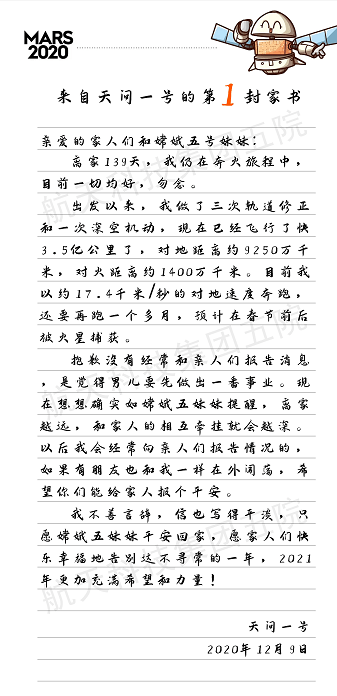 MARS
2020
来自天问一号的第1封家书
亲爱的家人们和嫦娥五号妹妹：
离家139天，我仍在奔火旅程中，
目前一切均好，勿念。
出发以来，我做了三次轨道修正
和一次深空机动，现在已经飞行了快
3.5亿公里了，对地距离约9250万千
米，对火距离约1400万千米。目前我
以约17.4千米/秒的对地速度奔跑，
还要再跑一个多月，预计在春节前后
被火星捕获。
抱歉没有经常和亲人们报告消息
，是觉得男儿要先做出一番事业。现
在想想确实如嫦娥五妹妹提醒，离家
越远，和家人的相互牵挂就会越深。
以后我会经常向亲人们报告情况的，
如果有朋友也和我一样在外闯荡，希
望你们能给家人报个平安。
我不善言辞，信也写得平淡，只
愿嫦娥五妹妹平安回家，愿家人们快
乐幸福地告别这不寻常的一年，2021
年更加充满希望和力量！
天问一号
2020年12月9日
航天科技集团五院
航天科技集团五院
航天科技集团五院